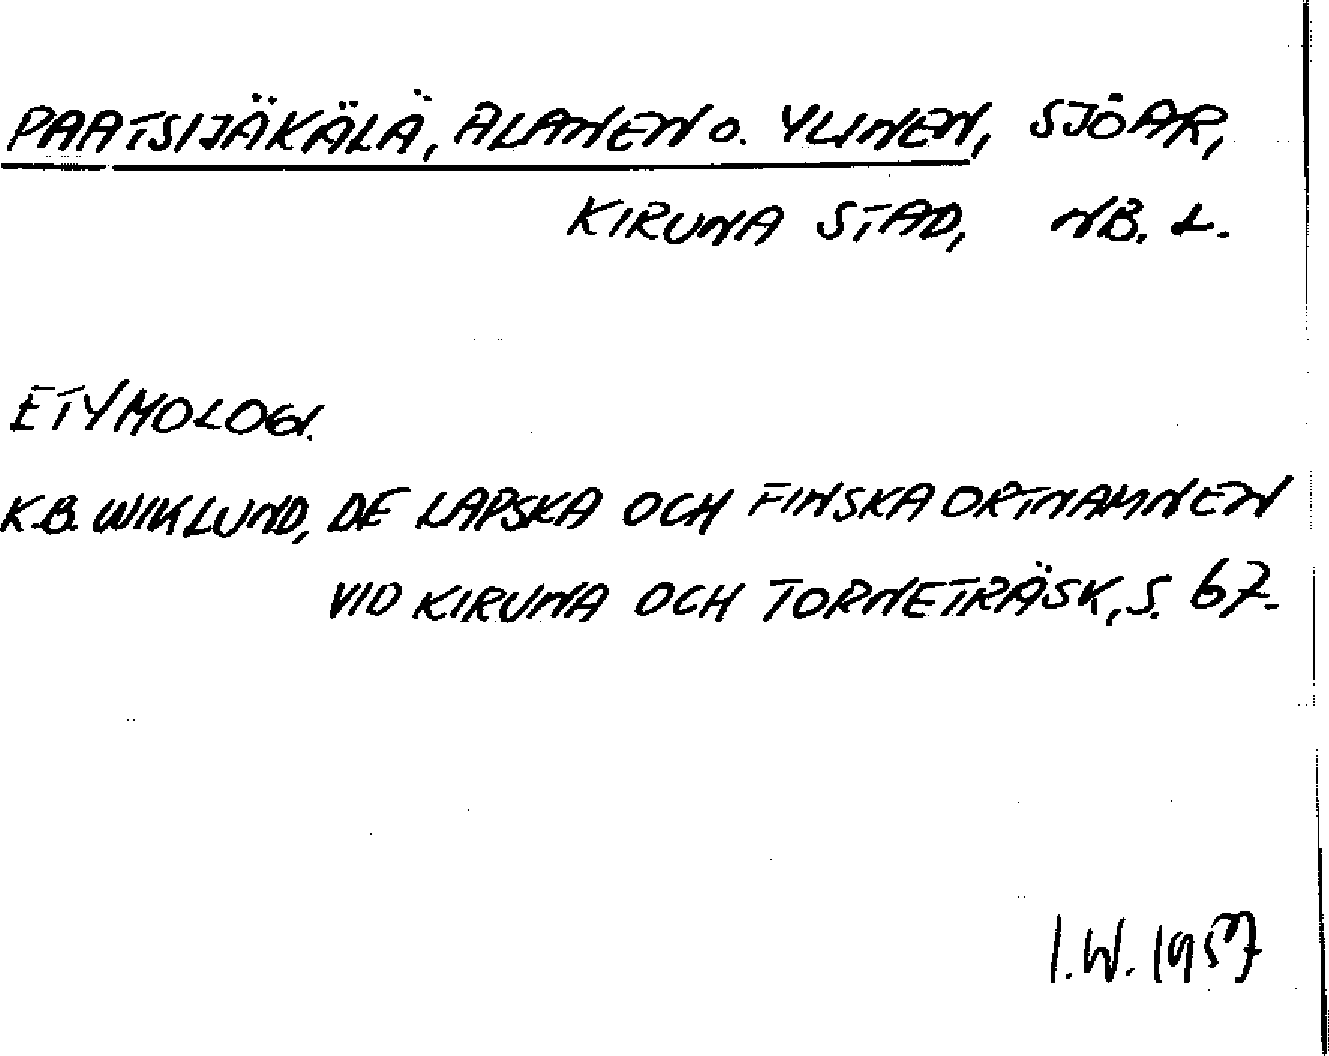 PAATSIJÄKÄLÄ, ALANEN O. YLINEN, SJÖAR,
KIRUNA STAD, NB. L.
ETYMOLOGI.
K.B. WIKLUND, DE LAPSKA OCH FINSKA ORTNAMNEN
VID KIRUNA OCH TORNETRÄSK, S. 67.
I.W. 1957